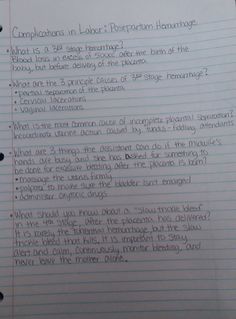 Complications in Labor: Postpartum Hemorrhage
• What is a 3rd stage hemorrhage?
Blood loss in excess of 500cc after the birth of the
baby, but before delivery of the placenta.
• What are the 3 principle causes of 3rd stage hemorrhage?
• partial separation of the placenta
• Cervical lacerations
• Vaginal lacerations
• What is the most common cause of incomplete placental separation?
Incoordinate uterine action caused by fundus-fiddling attendants
• What are 3 things the assistant can do if the midwife's
hands are busy and she has asked for something to
be done for excessive bleeding after the placenta is born?
• massage the uterus firmly
• palpate to make sure the bladder isn't enlarged
• administer oxytocic drugs
• What should you know about a "slow trickle bleed"
in the 4th stage, after the placenta has delivered?
It is rarely the torrential hemorrhage, but the slow
trickle bleed that kills. It is important to stay
alert and calm, continuously monitor bleeding, and
never leave the mother alone.